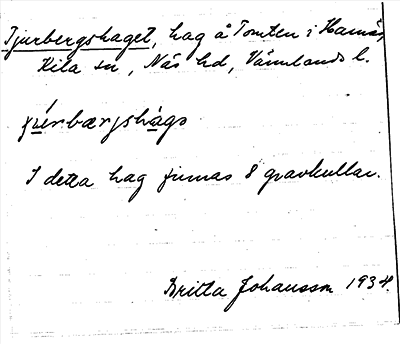 Tjurbergshaget, hag å Tomten i Hamnäs,
Kila sn, Näs hd, Värmlands l.
I detta hag finnas 8 gravkullar.
Britta Johansson 1934.